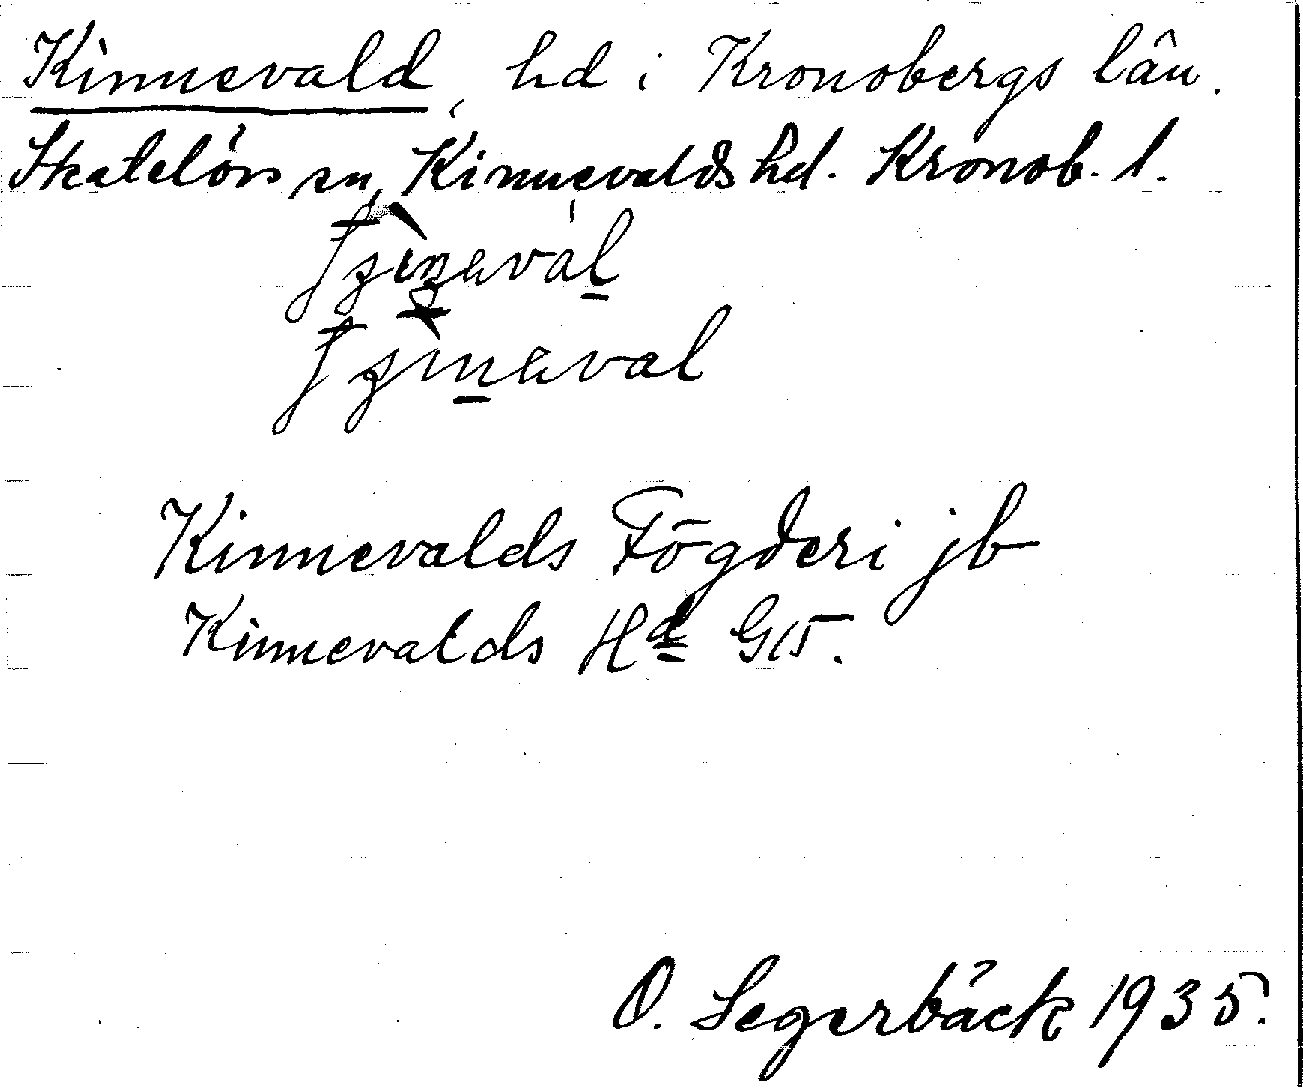 Kinnevald, hd i Kronobergs län.
Skatelövs sn, Kinnevalds hd. Kronob. l.
Kinnevalds Fögderi jb
Kinnevalds Hd G15.
O. Segerbäck 1935.